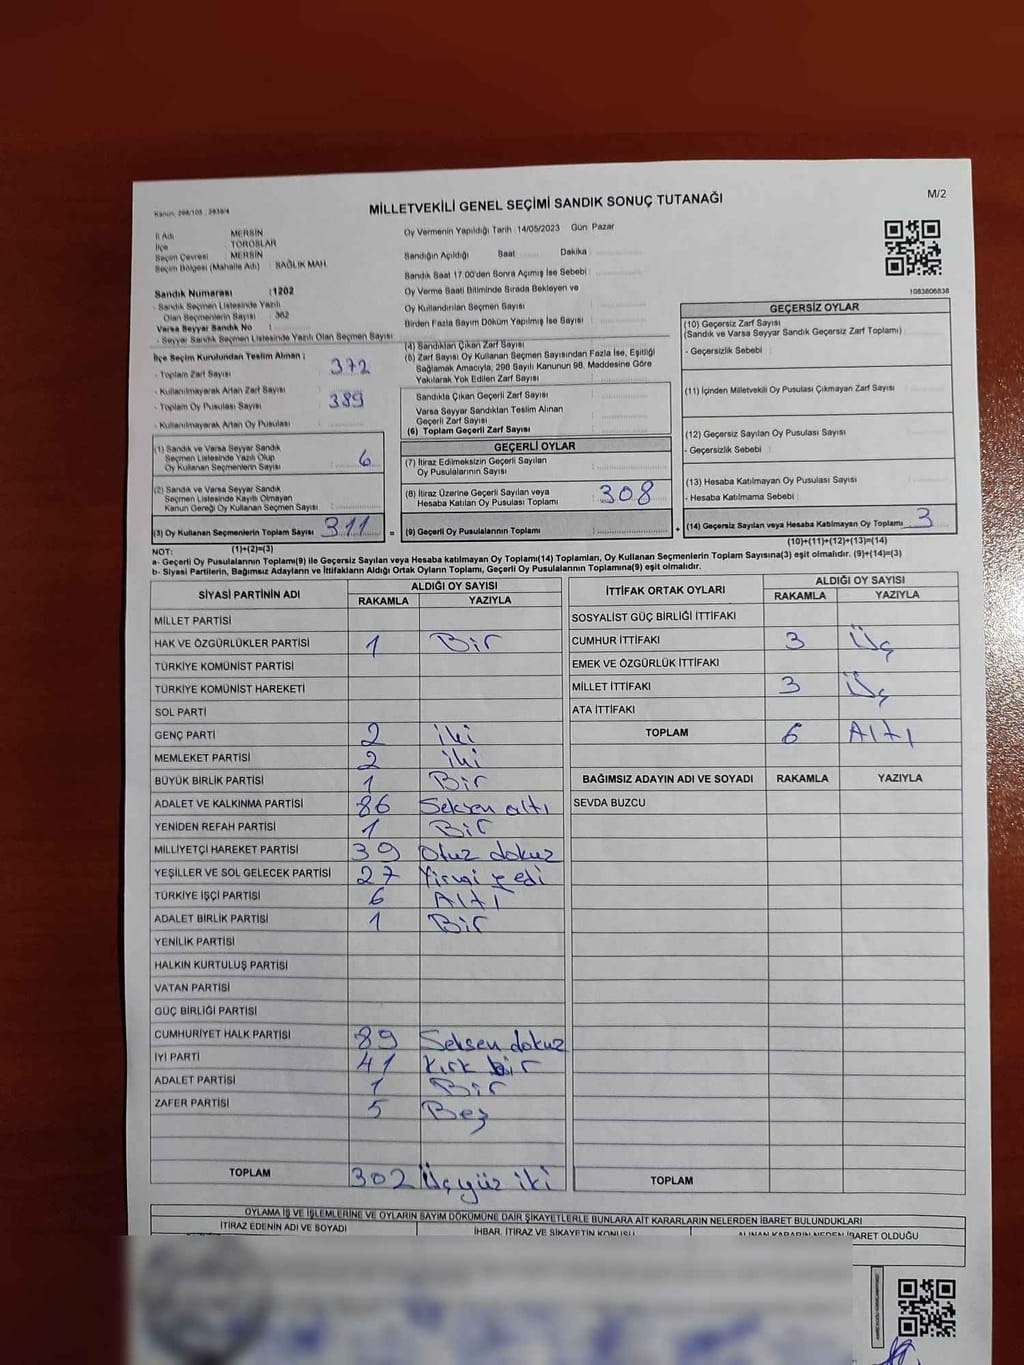 M/2
Kanun, 298/105 , 2839/4
MİLLETVEKİLİ GENEL SEÇİMİ SANDIK SONUÇ TUTANAĞI
İl Adı : MERSİN
İlçe : TOROSLAR
Seçim Çevresi : MERSİN
Seçim Bölgesi (Mahalle Adı) : SAĞLIK MAH.
Sandık Numarası : 1202
- Sandık Seçmen Listesinde Yazılı
Olan Seçmenlerin Sayısı : 362
Varsa Seyyar Sandık No :
- Seyyar Sandık Seçmen Listesinde Yazılı Olan Seçmen Sayısı
İlçe Seçim Kurulundan Teslim Alınan ;
- Toplam Zarf Sayısı 372
- Kullanılmayarak Artan Zarf Sayısı
- Toplam Oy Pusulası Sayısı 389
- Kullanılmayarak Artan Oy Pusulası
(1) Sandık ve Varsa Seyyar Sandık
Seçmen Listesinde Yazılı Olup
Oy Kullanan Seçmenlerin Sayısı 6
(2) Sandık ve Varsa Seyyar Sandık
Seçmen Listesinde Kayıtlı Olmayan
Kanun Gereği Oy Kullanan Seçmen Sayısı
(3) Oy Kullanan Seçmenlerin Toplam Sayısı 311 =
(1)+(2)=(3)
Oy Vermenin Yapıldığı Tarih : 14/05/2023 Gün : Pazar
Sandığın Açıldığı Saat Dakika
Sandık Saat 17.00'den Sonra Açımış İse Sebebi :
Oy Verme Saati Bitiminde Sırada Bekleyen ve
Oy Kullandırılan Seçmen Sayısı
Birden Fazla Sayım Döküm Yapılmış İse Sayısı
(4) Sandıktan Çıkan Zarf Sayısı
(5) Zarf Sayısı Oy Kullanan Seçmen Sayısından Fazla İse, Eşitliği
Sağlamak Amacıyla, 298 Sayılı Kanunun 98. Maddesine Göre
Yakılarak Yok Edilen Zarf Sayısı
Sandıkta Çıkan Geçerli Zarf Sayısı
Varsa Seyyar Sandıktan Teslim Alınan
Geçerli Zarf Sayısı
(6) Toplam Geçerli Zarf Sayısı
GEÇERLİ OYLAR
(7) İtiraz Edilmeksizin Geçerli Sayılan
Oy Pusulalarının Sayısı
(8) İtiraz Üzerine Geçerli Sayılan veya
Hesaba Katılan Oy Pusulası Toplamı 308
(9) Geçerli Oy Pusulalarının Toplamı +
1083806838
GEÇERSİZ OYLAR
(10) Geçersiz Zarf Sayısı
(Sandık ve Varsa Seyyar Sandık Geçersiz Zarf Toplamı)
- Geçersizlik Sebebi
(11) İçinden Milletvekili Oy Pusulası Çıkmayan Zarf Sayısı
(12) Geçersiz Sayılan Oy Pusulası Sayısı
- Geçersizlik Sebebi
(13) Hesaba Katılmayan Oy Pusulası Sayısı
- Hesaba Katılmama Sebebi
(14) Geçersiz Sayılan veya Hesaba Katılmayan Oy Toplamı 3
(10)+(11)+(12)+(13)=(14)
NOT:
a- Geçerli Oy Pusulalarının Toplamı(9) ile Geçersiz Sayılan veya Hesaba katılmayan Oy Toplamı(14) Toplamları, Oy Kullanan Seçmenlerin Toplam Sayısına(3) eşit olmalıdır. (9)+(14)=(3)
b- Siyasi Partilerin, Bağımsız Adayların ve İttifakların Aldığı Ortak Oyların Toplamı, Geçerli Oy Pusulalarının Toplamına(9) eşit olmalıdır.
SİYASİ PARTİNİN ADI ALDIĞI OY SAYISI
RAKAMLA YAZIYLA
MİLLET PARTİSİ
HAK VE ÖZGÜRLÜKLER PARTİSİ 1 Bir
TÜRKİYE KOMÜNİST PARTİSİ
TÜRKİYE KOMÜNİST HAREKETİ
SOL PARTİ
GENÇ PARTİ 2 iki
MEMLEKET PARTİSİ 2 iki
BÜYÜK BİRLİK PARTİSİ 1 Bir
ADALET VE KALKINMA PARTİSİ 86 Seksen altı
YENİDEN REFAH PARTİSİ 1 Bir
MİLLİYETÇİ HAREKET PARTİSİ 39 Otuz dokuz
YEŞİLLER VE SOL GELECEK PARTİSİ 27 Yirmi yedi
TÜRKİYE İŞÇİ PARTİSİ 6 Altı
ADALET BİRLİK PARTİSİ 1 Bir
YENİLİK PARTİSİ
HALKIN KURTULUŞ PARTİSİ
VATAN PARTİSİ
GÜÇ BİRLİĞİ PARTİSİ
CUMHURİYET HALK PARTİSİ 89 Seksen dokuz
İYİ PARTİ 41 Kırk bir
ADALET PARTİSİ 1 Bir
ZAFER PARTİSİ 5 Beş
TOPLAM 302 Üçyüz iki
İTTİFAK ORTAK OYLARI ALDIĞI OY SAYISI
RAKAMLA YAZIYLA
SOSYALİST GÜÇ BİRLİĞİ İTTİFAKI
CUMHUR İTTİFAKI 3 Üç
EMEK VE ÖZGÜRLÜK İTTİFAKI
MİLLET İTTİFAKI 3 Üç
ATA İTTİFAKI
TOPLAM 6 Altı
BAĞIMSIZ ADAYIN ADI VE SOYADI RAKAMLA YAZIYLA
SEVDA BUZCU
TOPLAM
OYLAMA İŞ VE İŞLEMLERİNE VE OYLARIN SAYIM DÖKÜMÜNE DAİR ŞİKAYETLERLE BUNLARA AİT KARARLARIN NELERDEN İBARET BULUNDUKLARI
İTİRAZ EDENİN ADI VE SOYADI İHBAR, İTİRAZ VE ŞİKAYETİN KONUSU ALINAN KARARIN NEDEN İBARET OLDUĞU